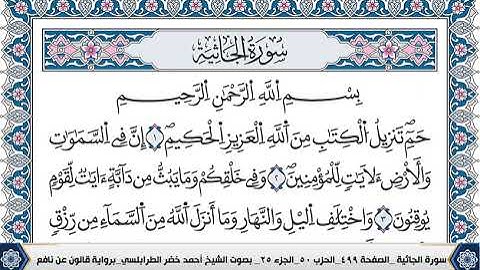 سُورَةُ الْجَاثِيَةِ
بِسْمِ اِ۬للَّهِ اِ۬لرَّحْمَٰنِ اِ۬لرَّحِيمِ
حَمِٓ تَنزِيلُ اُ۬لْكِتَٰبِ مِنَ اَ۬للَّهِ اِ۬لْعَزِيزِ اِ۬لْحَكِيمِ ١ إِنَّ فِے اِ۬لسَّمَٰوَٰتِ
وَالَارْضِ ءَلَايَٰتٖ لِّلْمُؤْمِنِينَ ٢ وَفِے خَلْقِكُمْ وَمَا يَبُثُّ مِن دَآبَّةٍ ءَايَٰتٞ لِّقَوْمٖ
يُوقِنُونَ ٣ وَاخْتِلَٰفِ اِ۬ليْلِ وَالنَّهَارِ وَمَا أَنزَلَ اَ۬للَّهُ مِنَ اَ۬لسَّمَآءِ مِن رِّزْقٖ
سورة الجاثية _الصفحة ٤٩٩_الحزب ٥٠_الجزء ٢٥_ بصوت الشيخ أحمد خضر الطرابلسي_برواية قالون عن نافع